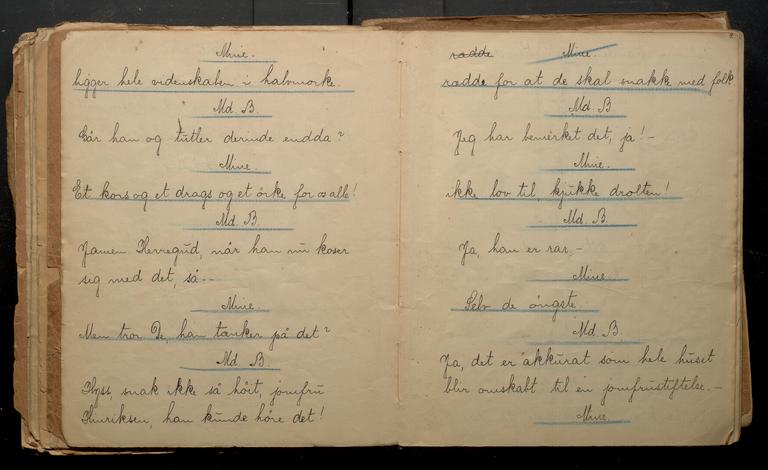 Mine.
ligger hele videnskaben i halvmørke.
Md. B.
Går han og tutler derinde endda?
Mine.
Et kors og et drags og et ørke for os alle!
Md. B.
Jamen Herregud, når han nu koser
sig med det, så--
Mine.
Men tror De, han tænker på det?
Md. B.
Hyss, snak ikke så høit, jomfru
Henriksen, han kunde høre det!
rædde Mine.
rædde for at de skal snakke med folk
Md. B.
Jeg har bemerket det, ja! -
Mine.
ikke lov til kjukke drolten!
Md. B.
Ja, han er rar. -
Mine.
Selv de yngste.
Md. B.
Ja, det er akkurat som hele huset
blir omskabt til en jomfrustiftelse. -
Mine.